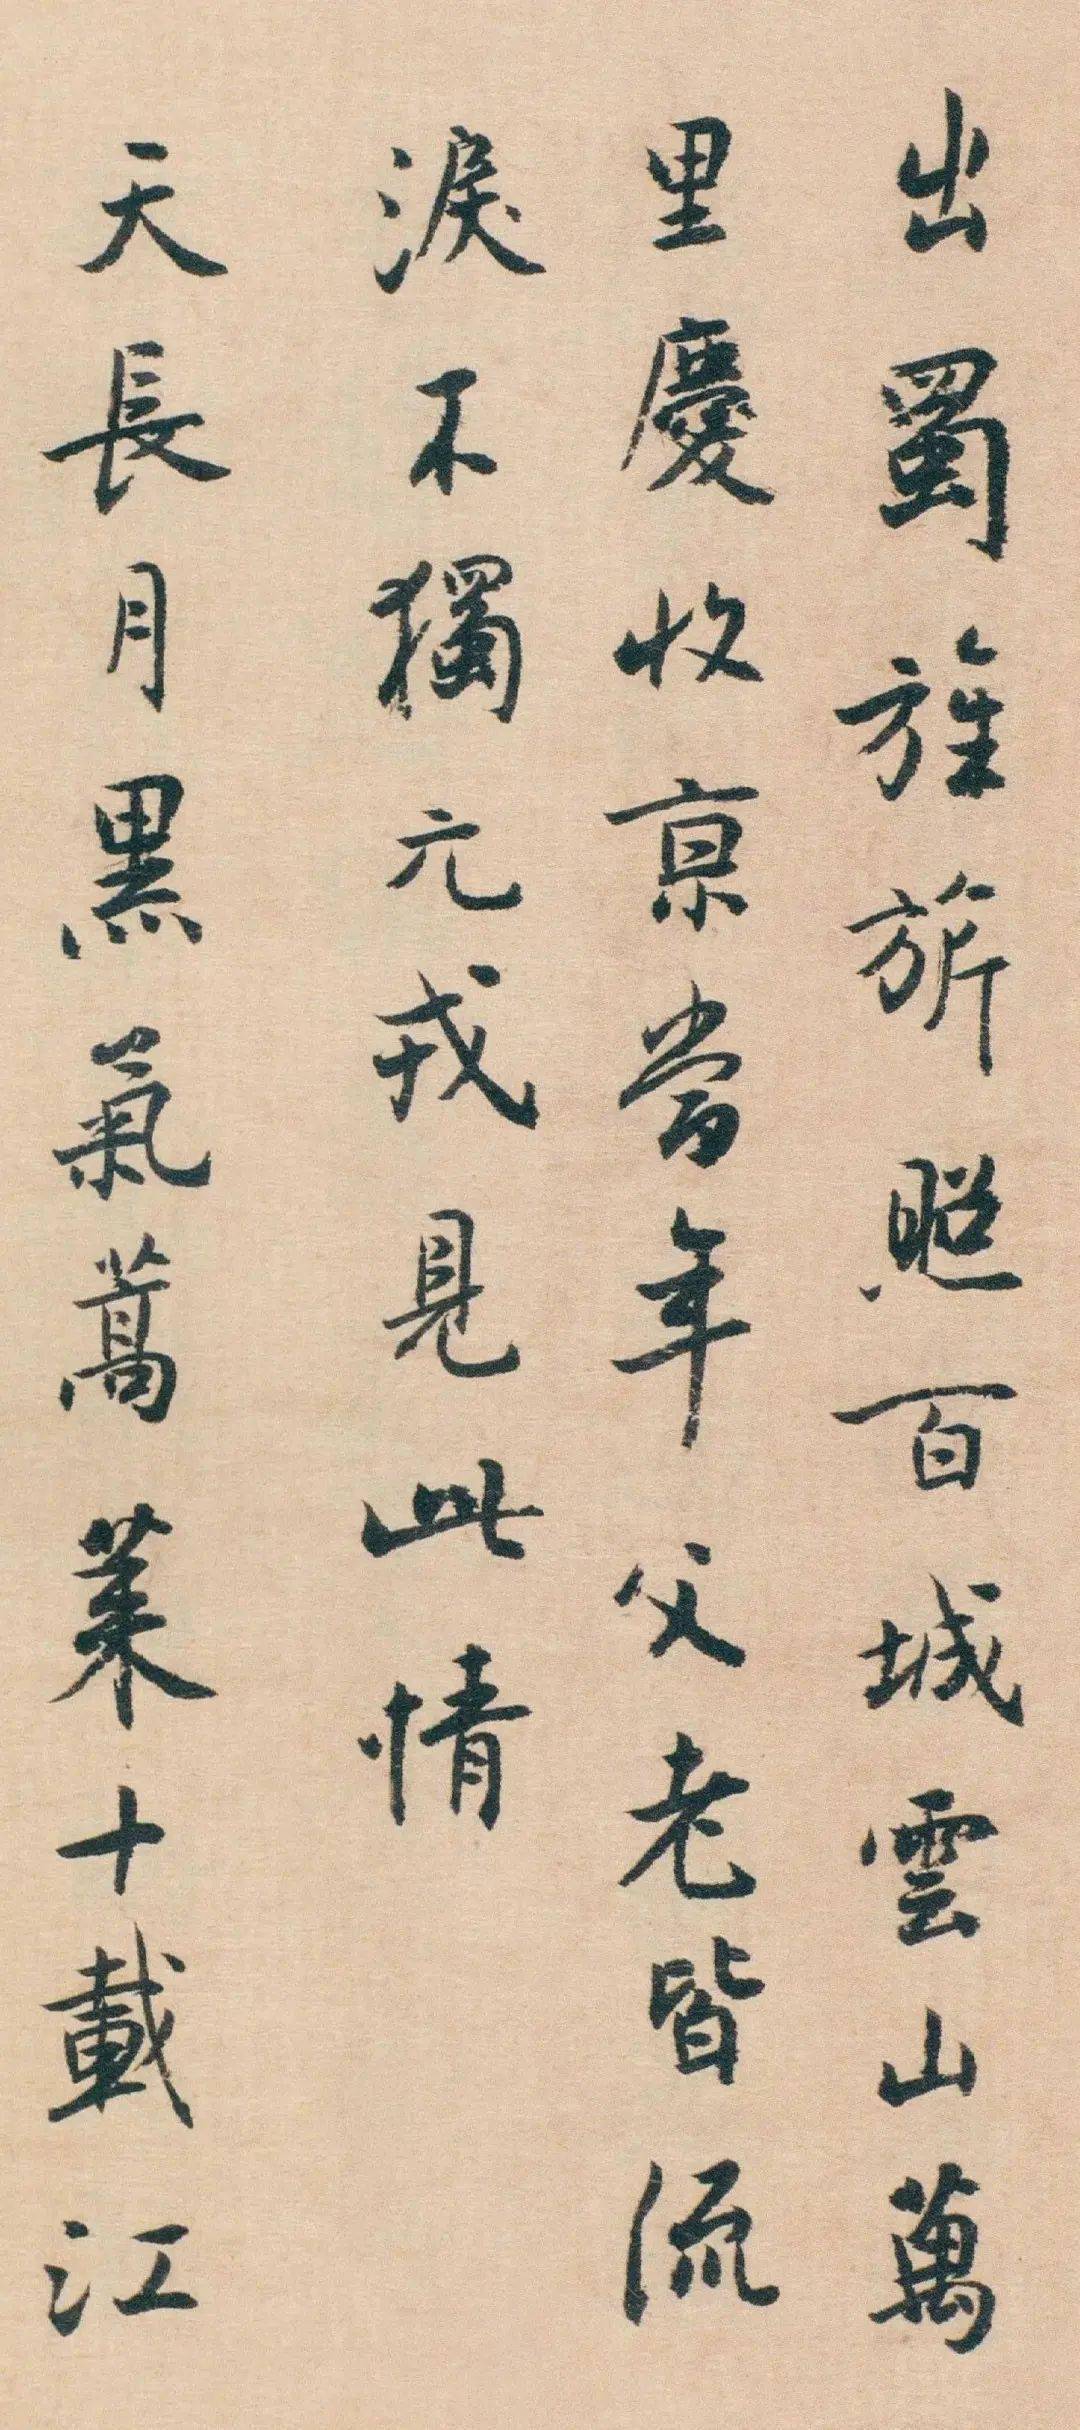 出蜀旌旂照百城雲山萬
里慶收京當年父老皆流
淚不獨元戎見此情
天長月黑氣蒿萊十載江